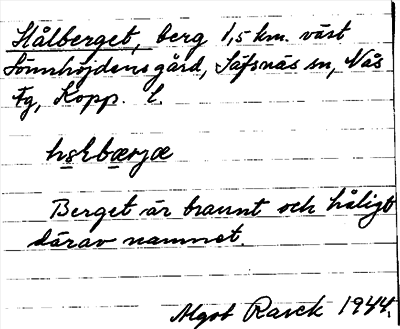 Hålberget, berg 1,5 km. väst
Sönnhöjdens gård, Säfsnäs sn, Näs
Fg, Kopp. L.
Berget är brannt och håligt
därav namnet.
Algot Rasck 1944.